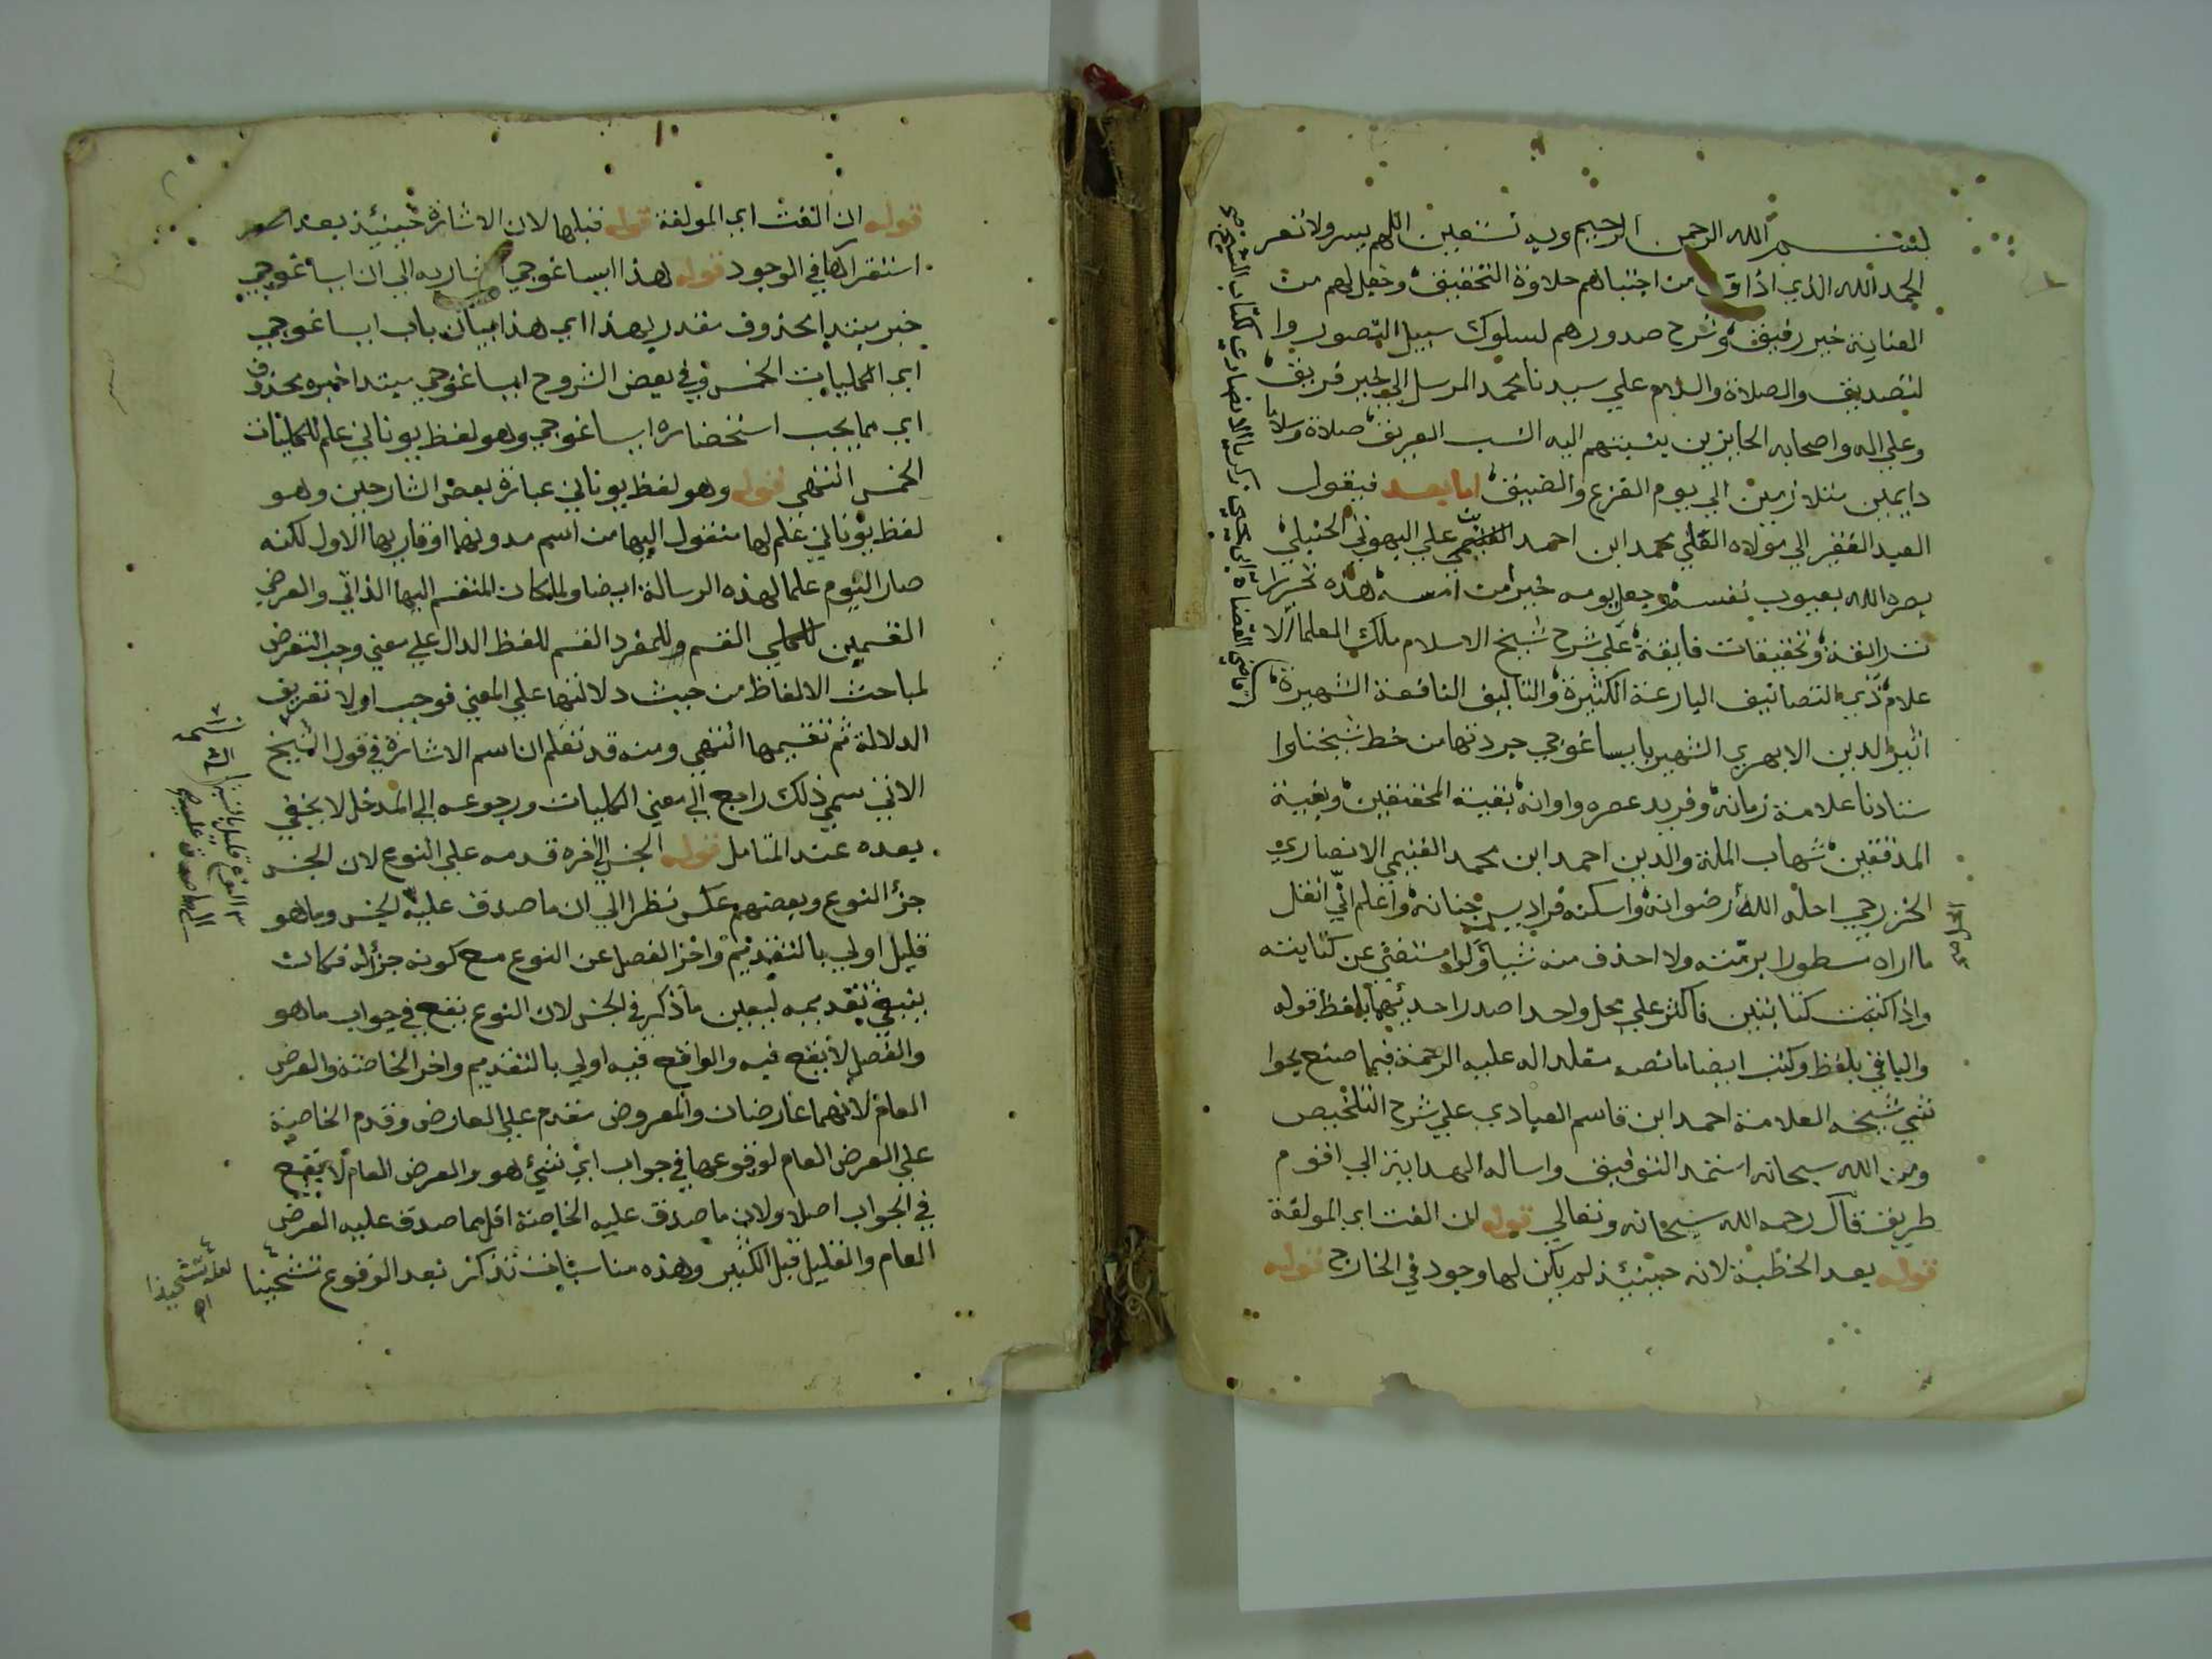 بسم الله الرحمن الرحيم وبه نستعين اللهم يسر ولا تعسر
الحمد لله الذي اذاق من اجتباهم حلاوة التحقيق وجعل لهم من
العناية خير رفيق وشرح صدورهم لسلوك سبيل التصور وا
لتصديق والصلاة والسلام علي سيدنا محمد المرسل الي خير فريق
وعلي اله واصحابه الحايزين بنسبتهم اليه النسب العريق صلاة وسلاما
دايمين متلازمين الي يوم الفزع والضيق اما بعد فيقول
العبد الفقير الي مولاه العلي محمد ابن احمد ابن علي البهوتي الحنبلي
بصره الله بعيوب نفسه وجعل يومه خيرا من امسه هذه تحريرا
ت رائقة وتحقيقات فايقة علي شرح شيخ الاسلام ملك العلما الا
علام ذي التصانيف البارعة الكثيرة والتاليف النافعة الشهيرة
اثير الدين الابهري الشهير بايساغوجي جردتها من خط شيخنا وا
ستادنا علامة زمانه وفريد عصره واوانه بقية المحققين وبغية
المدققين شهاب الملة والدين احمد ابن محمد الغنيمي الانصاري
الخزرجي احله الله رضوانه واسكنه فراديس جنانه واعلم اني انقل
ما اراه مسطورا برمته ولا احذف منه شيا ولو استغني عن كتابته
واذا كتبت كتابتين فاكثر علي محل واحد اصدر احديهما بلفظ قوله
والباقي بلفظ وكتب ايضا ما نصه مقلدا له عليه الرحمة فيما صنع بحوا
شي شيخه العلامة احمد ابن قاسم العبادي علي شرح التلخيص
ومن الله سبحانه استمد التوفيق واساله الهداية الي اقوم
طريق قال رحمه الله سبحانه وتعالي قوله ان الفت اي المولفة
قوله بعد الخطبة لانه حينئذ لم يكن لها وجود في الخارج قوله
قاضي القضاة ابي يحيي زكريا الانصاري لكتاب الشيخ صح
قوله ان الفت اي المولفة قوله قبلها لان الاشارة حينئذ بعد
استقرارها في الوجود قوله هذا ايساغوجي اشار به الي ان ايساغوجي
خبر مبتدا محذوف مقدر بهذا اي هذا بيان باب ايساغوجي
اي الكليات الخمس وفي بعض الشروح ايساغوجي مبتدا خبره محذوف
اي مما يجب استحضاره ايساغوجي وهو لفظ يوناني علم للكليات
الخمس انتهي قوله وهو لفظ يوناني عبارة بعض الشارحين وهو
لفظ يوناني علم لها منقول اليها من اسم مدونها او قاريها الاول لكنه
صار اليوم علما لهذه الرسالة ايضا ولما كان المنقسم اليها الذاتي والعرضي
القسمين للكلي القسم وللمفرد القسم للفظ الدال علي معني وجب التعرض
لمباحث الالفاظ من حيث دلالتها علي المعني فوجب اولا تعريف
الدلالة ثم تقسيمها انتهي ومنه قد تعلم ان اسم الاشارة في قول الشيخ
الاتي سمي ذلك راجع الي معني الكليات ورجوعه الي المدخل لا يخفي
بعده عند المتامل قوله الجنس الي اخره قدمه علي النوع لان الجنس
جزء النوع وبعضهم عكس نظرا الي ان ما صدق عليه الجنس وما هو
قليل اولي بالتقديم واخر الفصل عن النوع مع كونه جزأ له فكان
ينبغي تقديمه ليعين ما ذكر في الجنس لان النوع يقع في جواب ما هو
والفصل لا يقع فيه والواقع فيه اولي بالتقديم واخر الخاصة والعرض
العام لانهما عارضان والمعروض مقدم علي العارض وقدم الخاصة
علي العرض العام لوقوعها في جواب اي شيء هو والعرض العام لا يقع
في الجواب اصلا ولان ما صدق عليه الخاصة اقل مما صدق عليه العرض
العام والقليل قبل الكثير وهذه مناسبات تذكر بعد الوقوع تشحينا
لعله تشحيذا
اه